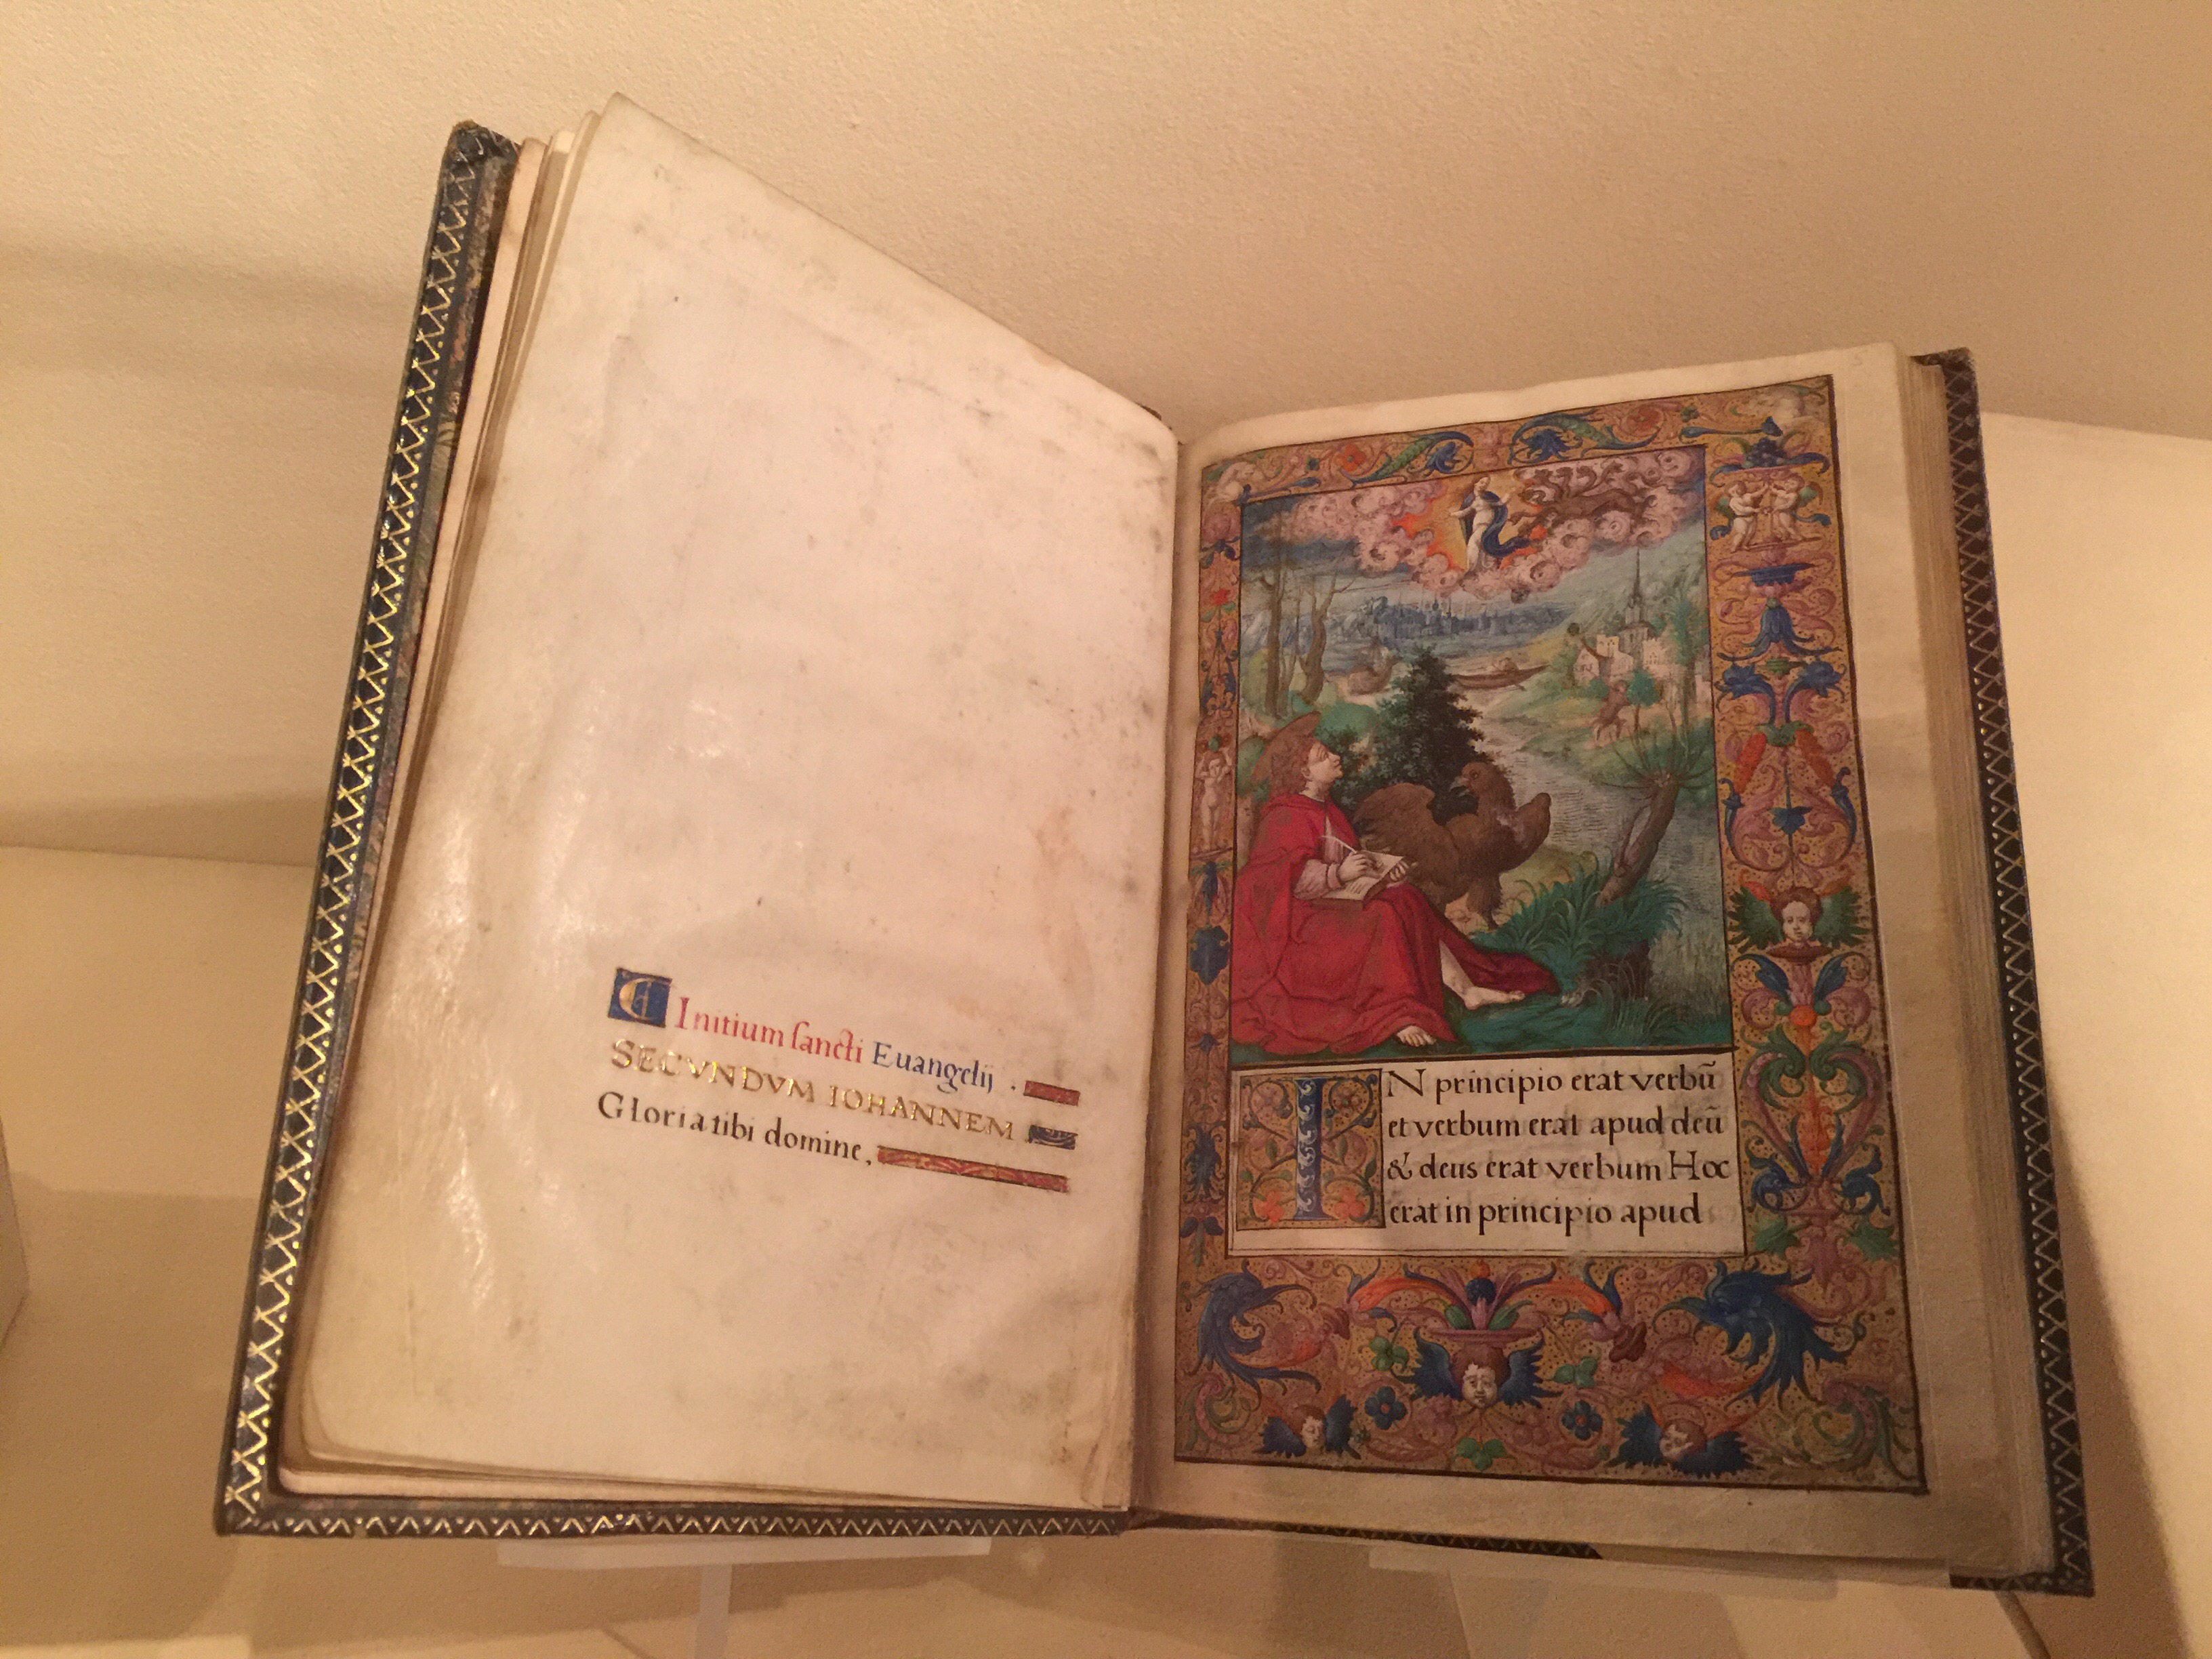 Initium sancti Euangelij .
SECVNDVM IOHANNEM
Gloria tibi domine,
IN principio erat verbū
et verbum erat apud deū
& deus erat verbum Hoc
erat in principio apud